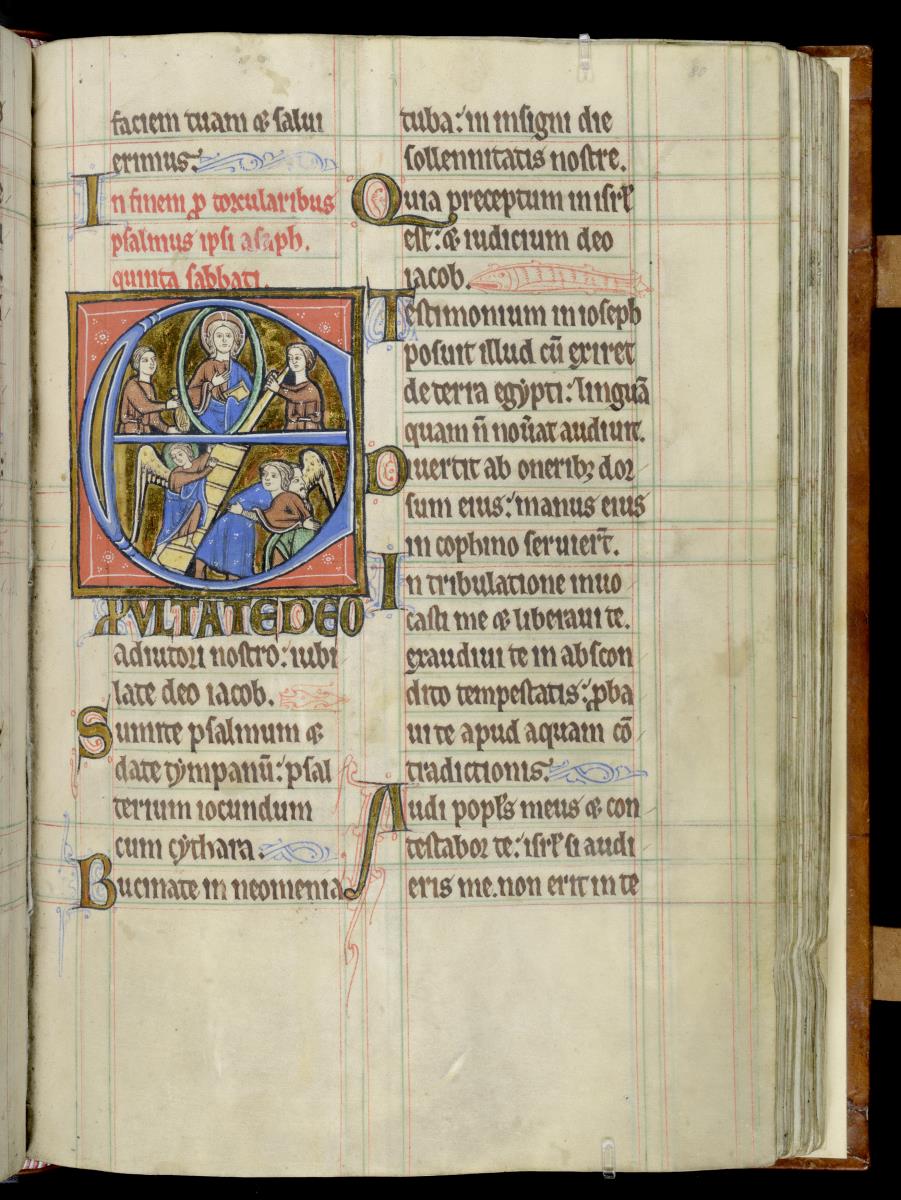 faciem tuam & salui
erimus.
In finem ꝓ torcularibus
psalmus ipsi asaph.
quinta sabbati.
EXULTATE DEO
adiutori nostro: iubi
late deo iacob.
Sumite psalmum &
date tympanū: psal
terium iocundum
cum cythara.
Bucinate in neomenia
tuba: in insigni die
sollennitatis nostre.
Quia preceptum in isrł
est: & iudicium deo
iacob.
Testimonium in ioseph
posuit illud cū exiret
de terra egypti: linguā
quam n̄ nouat audiuit.
Diuertit ab oneribꝫ dor
sum eius: manus eius
in cophino seruier̄t.
In tribulatione inuo
casti me & liberaui te.
exaudiui te in abscon
dito tempestatis: ꝓba
ui te apud aquam cō
tradictionis.
Audi popl̄s meus & con
testabor te: isrł si audi
eris me. non erit in te
80